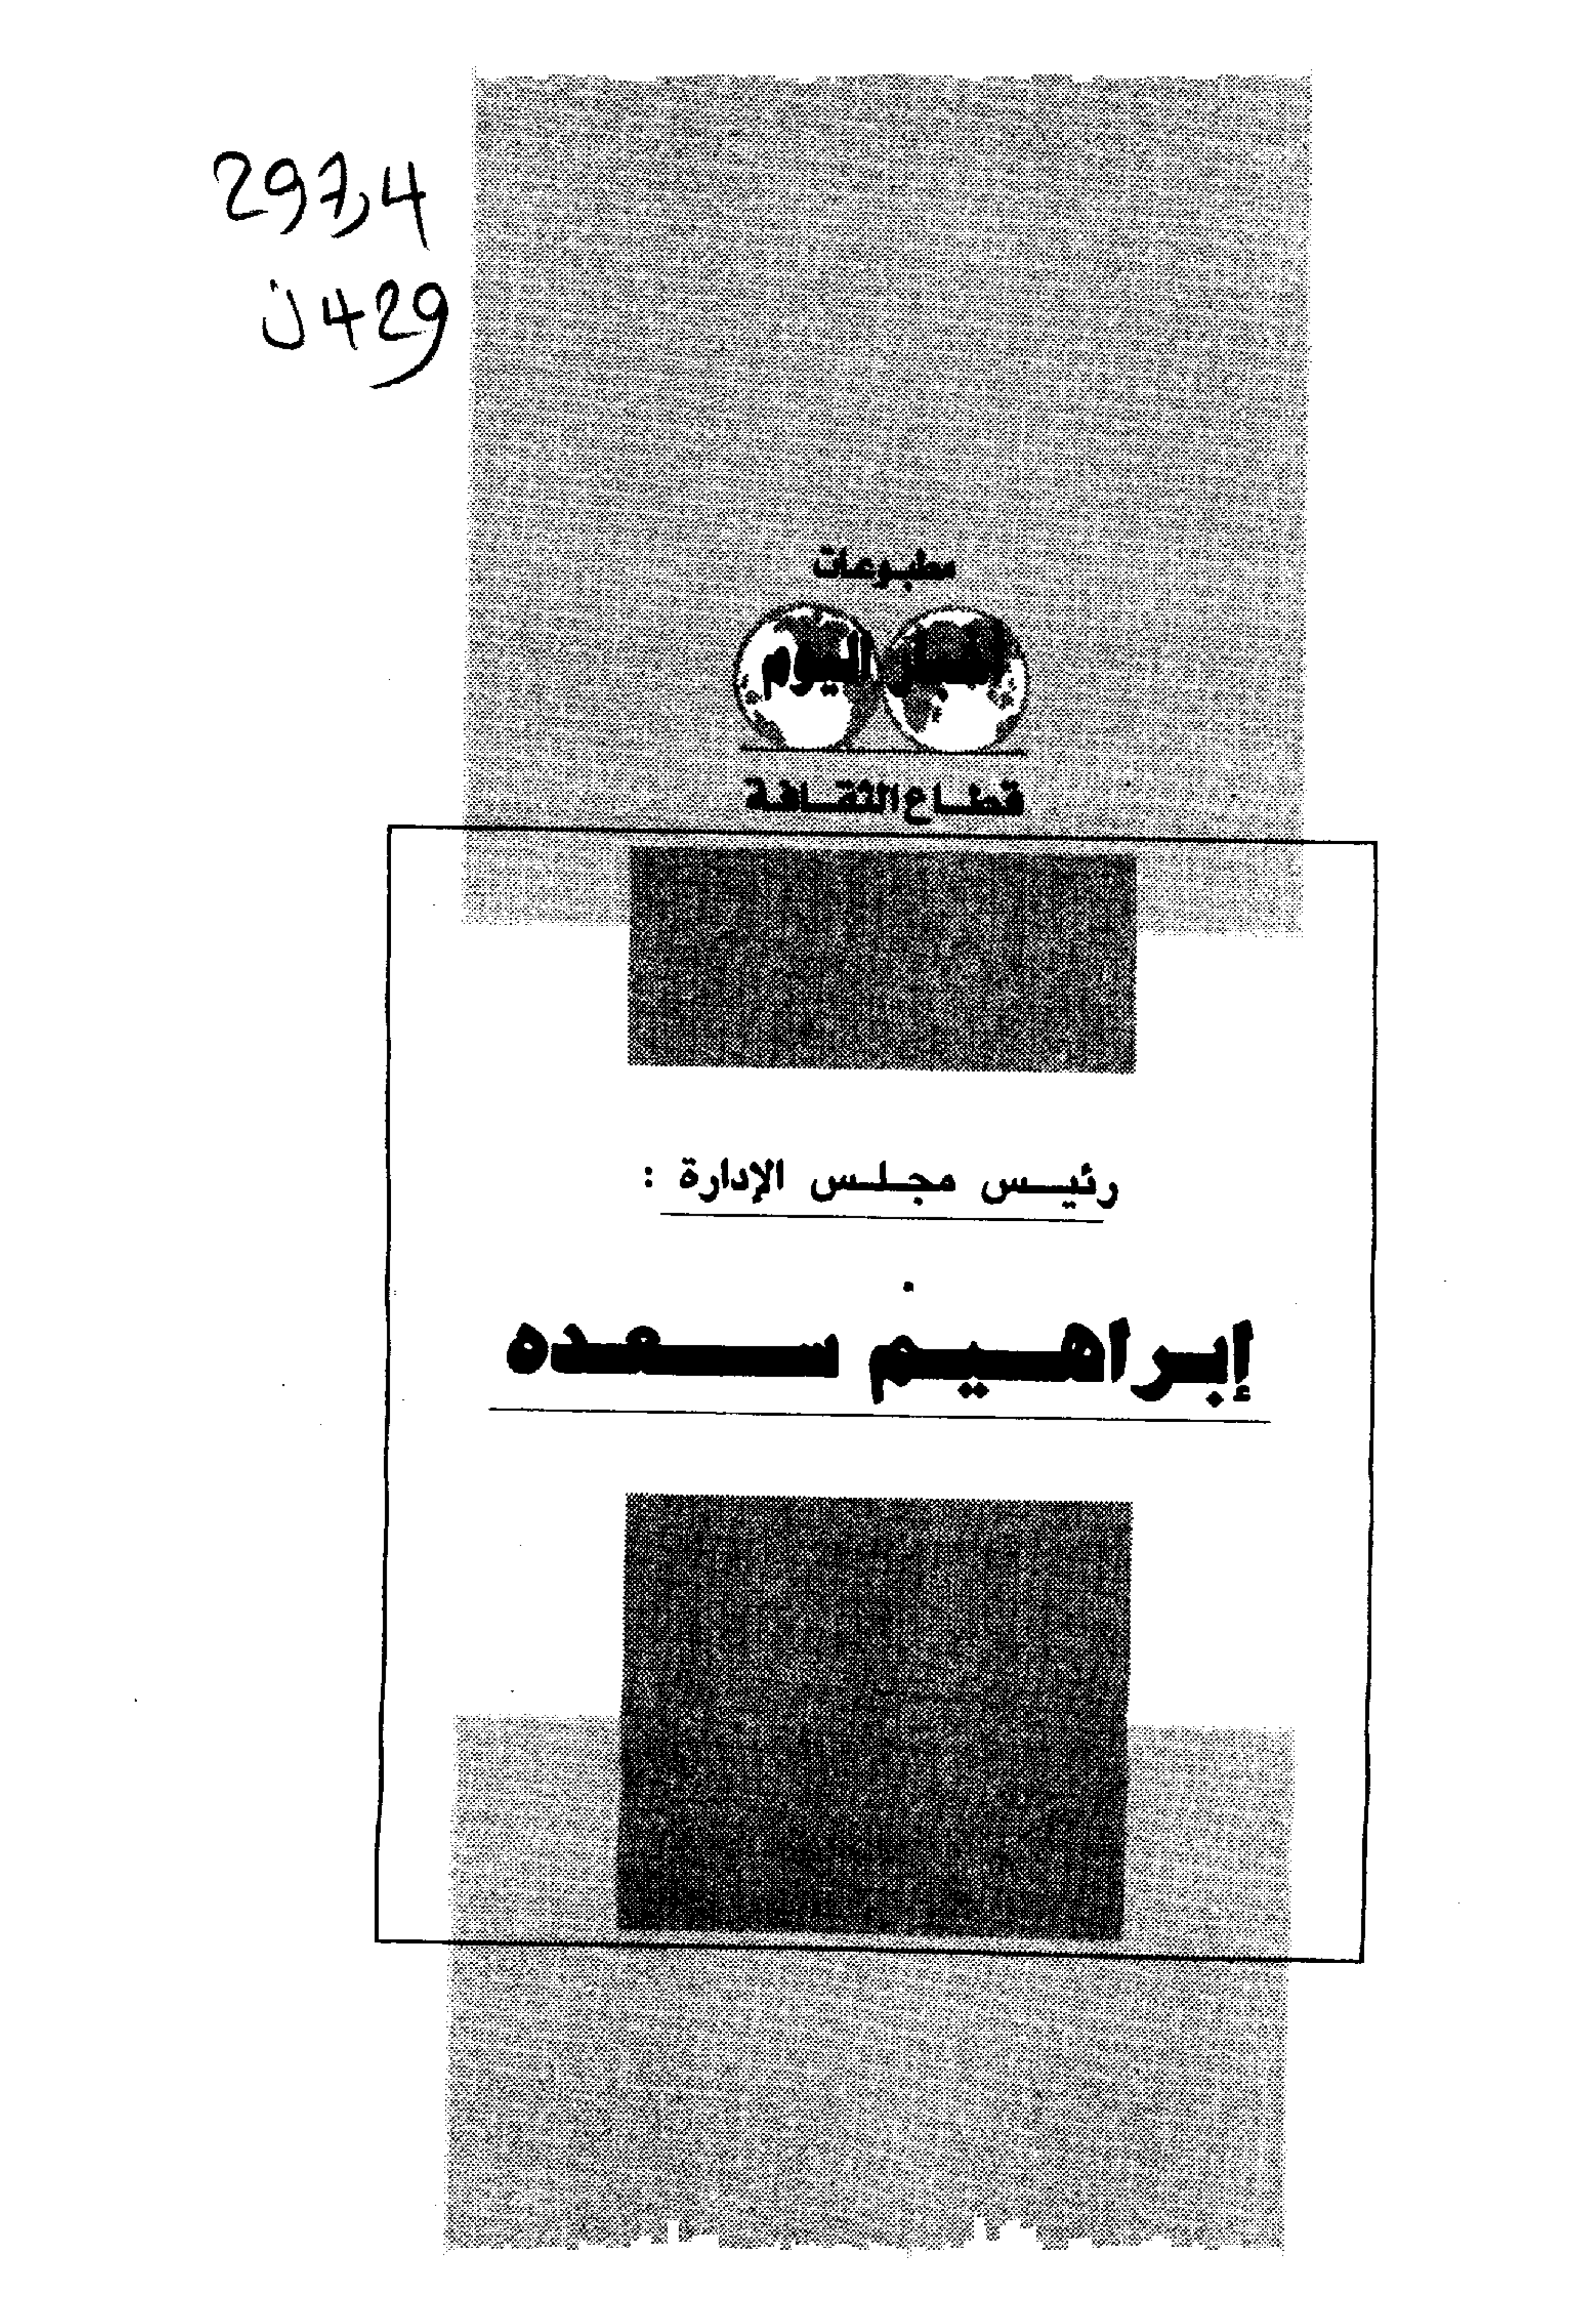 297,4
ن 429
مطبوعات
أخبار اليوم
قطاع الثقافة
رئيس مجلس الإدارة :
إبراهيم سعده